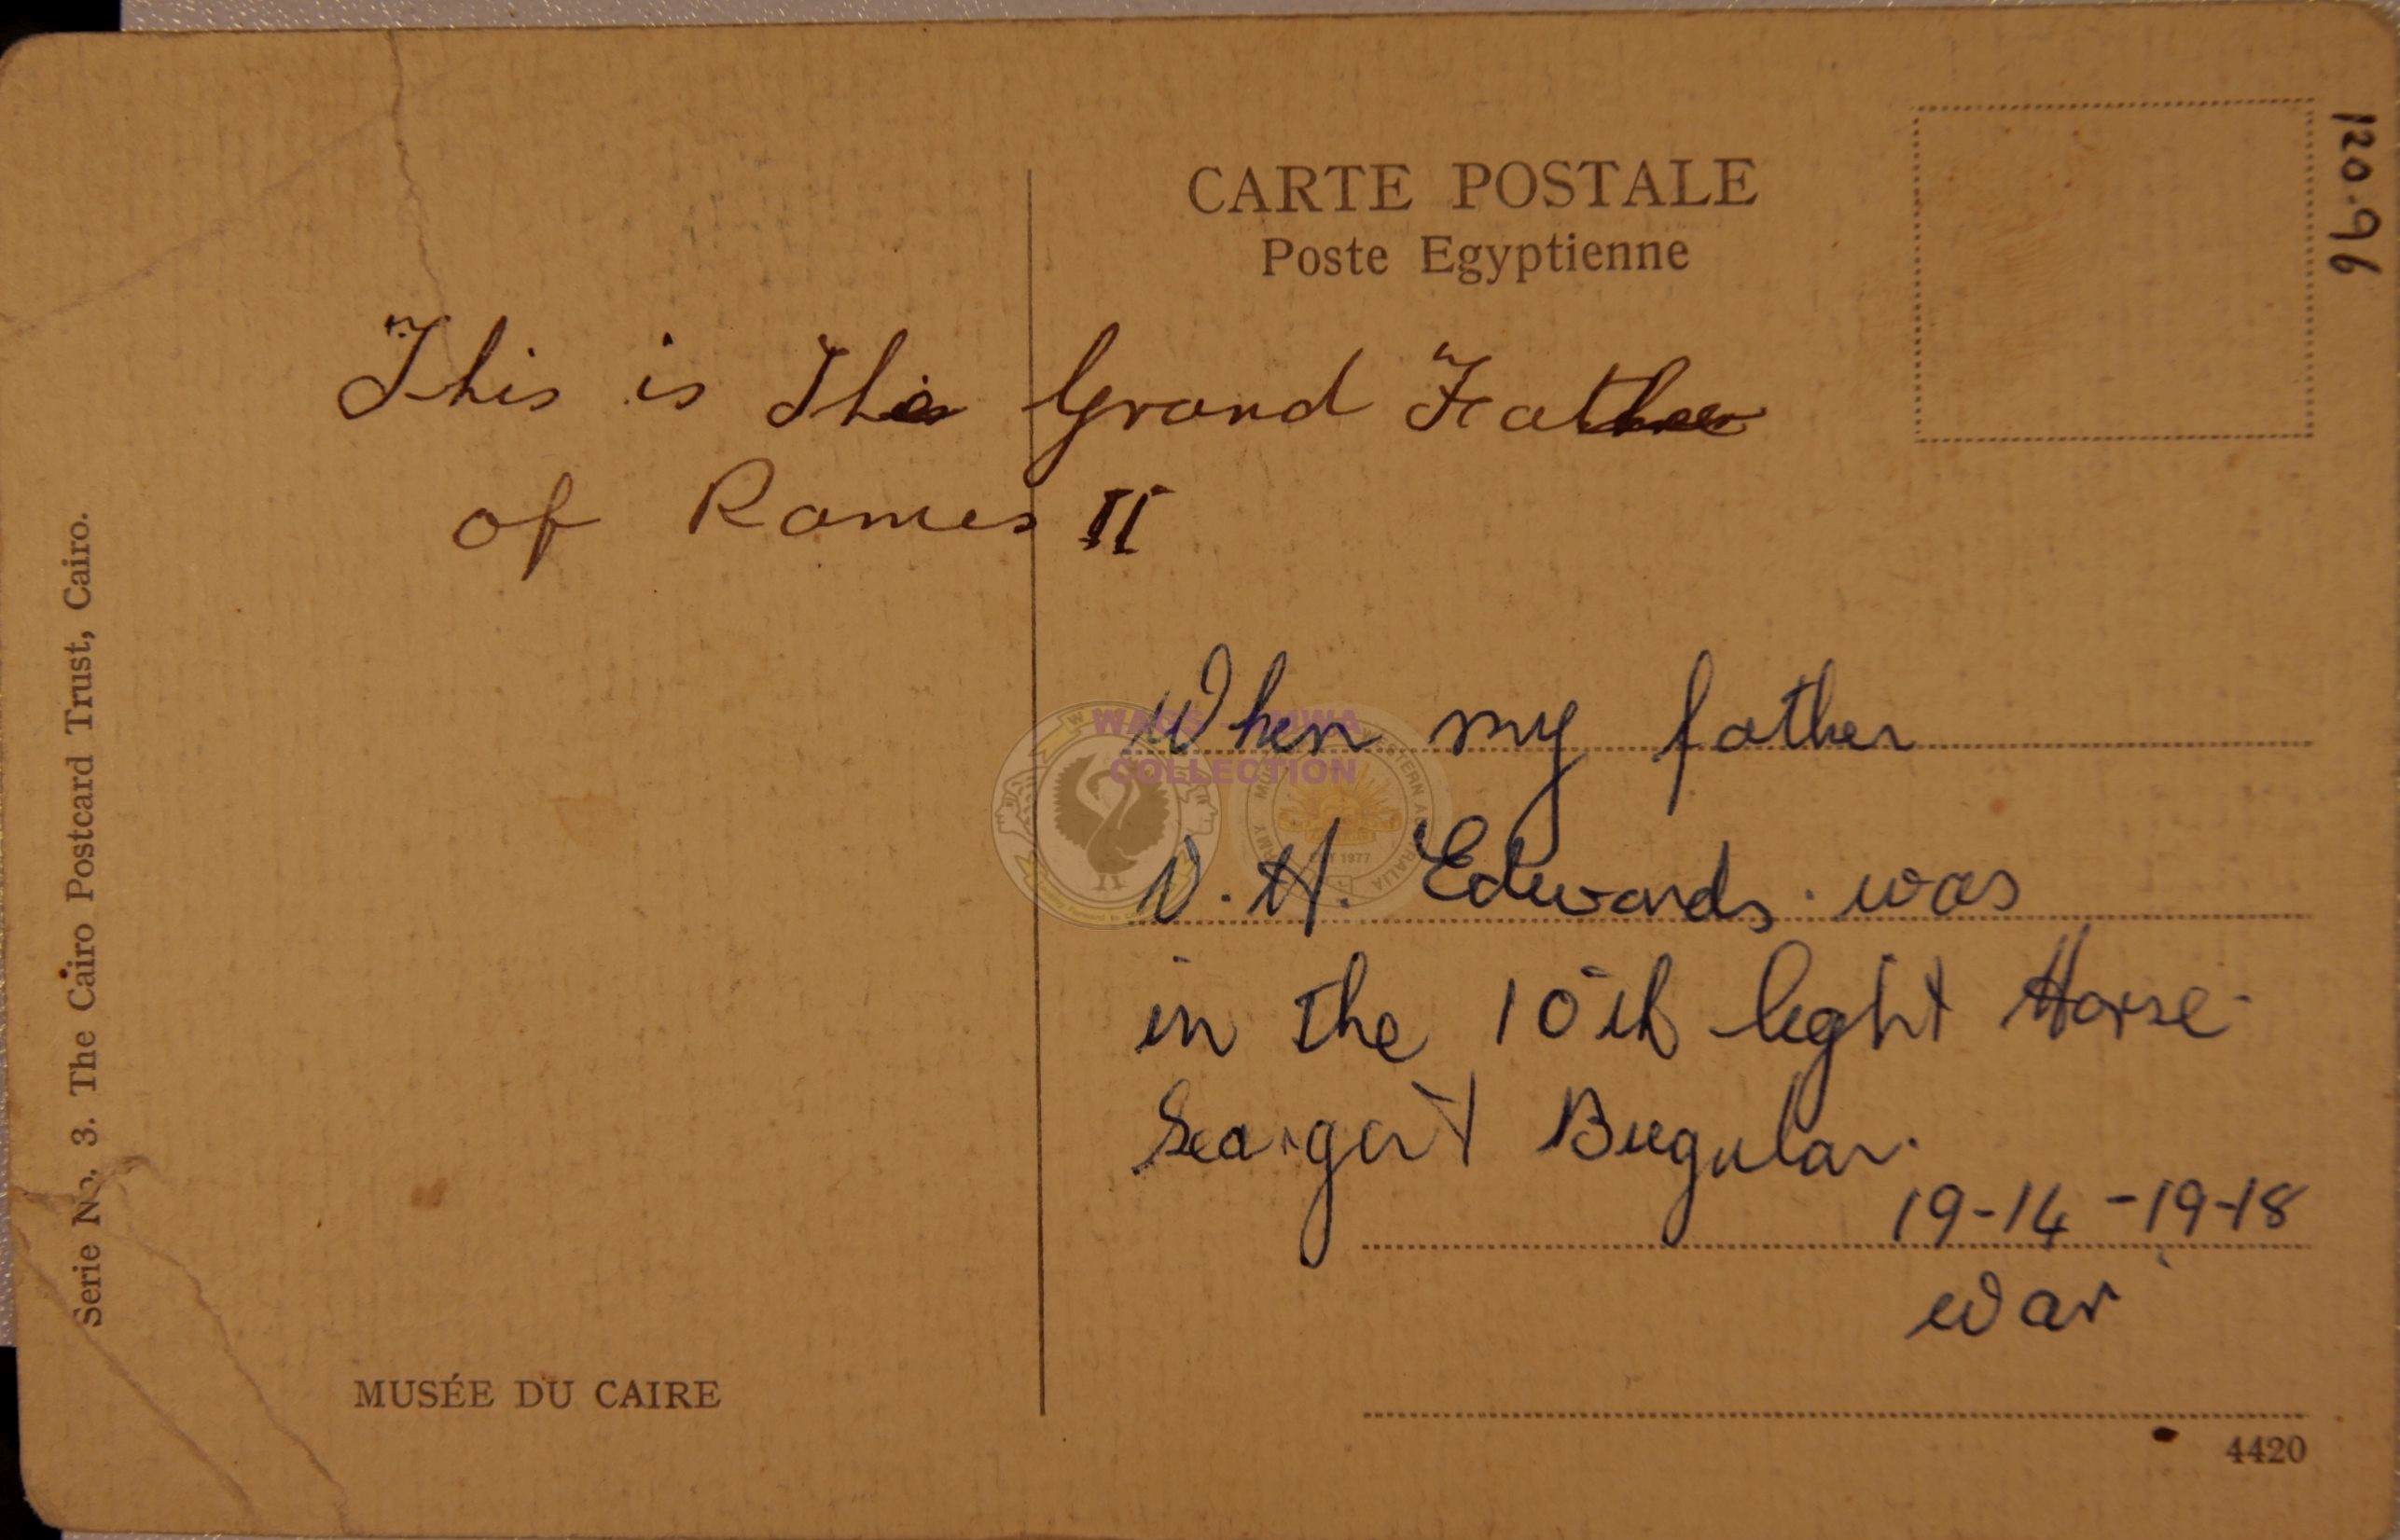 CARTE POSTALE
Poste Egyptienne
120.96
This is The Grand Father
of Rames II
When my father
D. H. Edwards. was
in the 10th light Horse.
Seargent Bugular.
19-14-19-18
war
Serie No. 3. The Cairo Postcard Trust, Cairo.
MUSÉE DU CAIRE
4420
COLLECTION
EST 1877